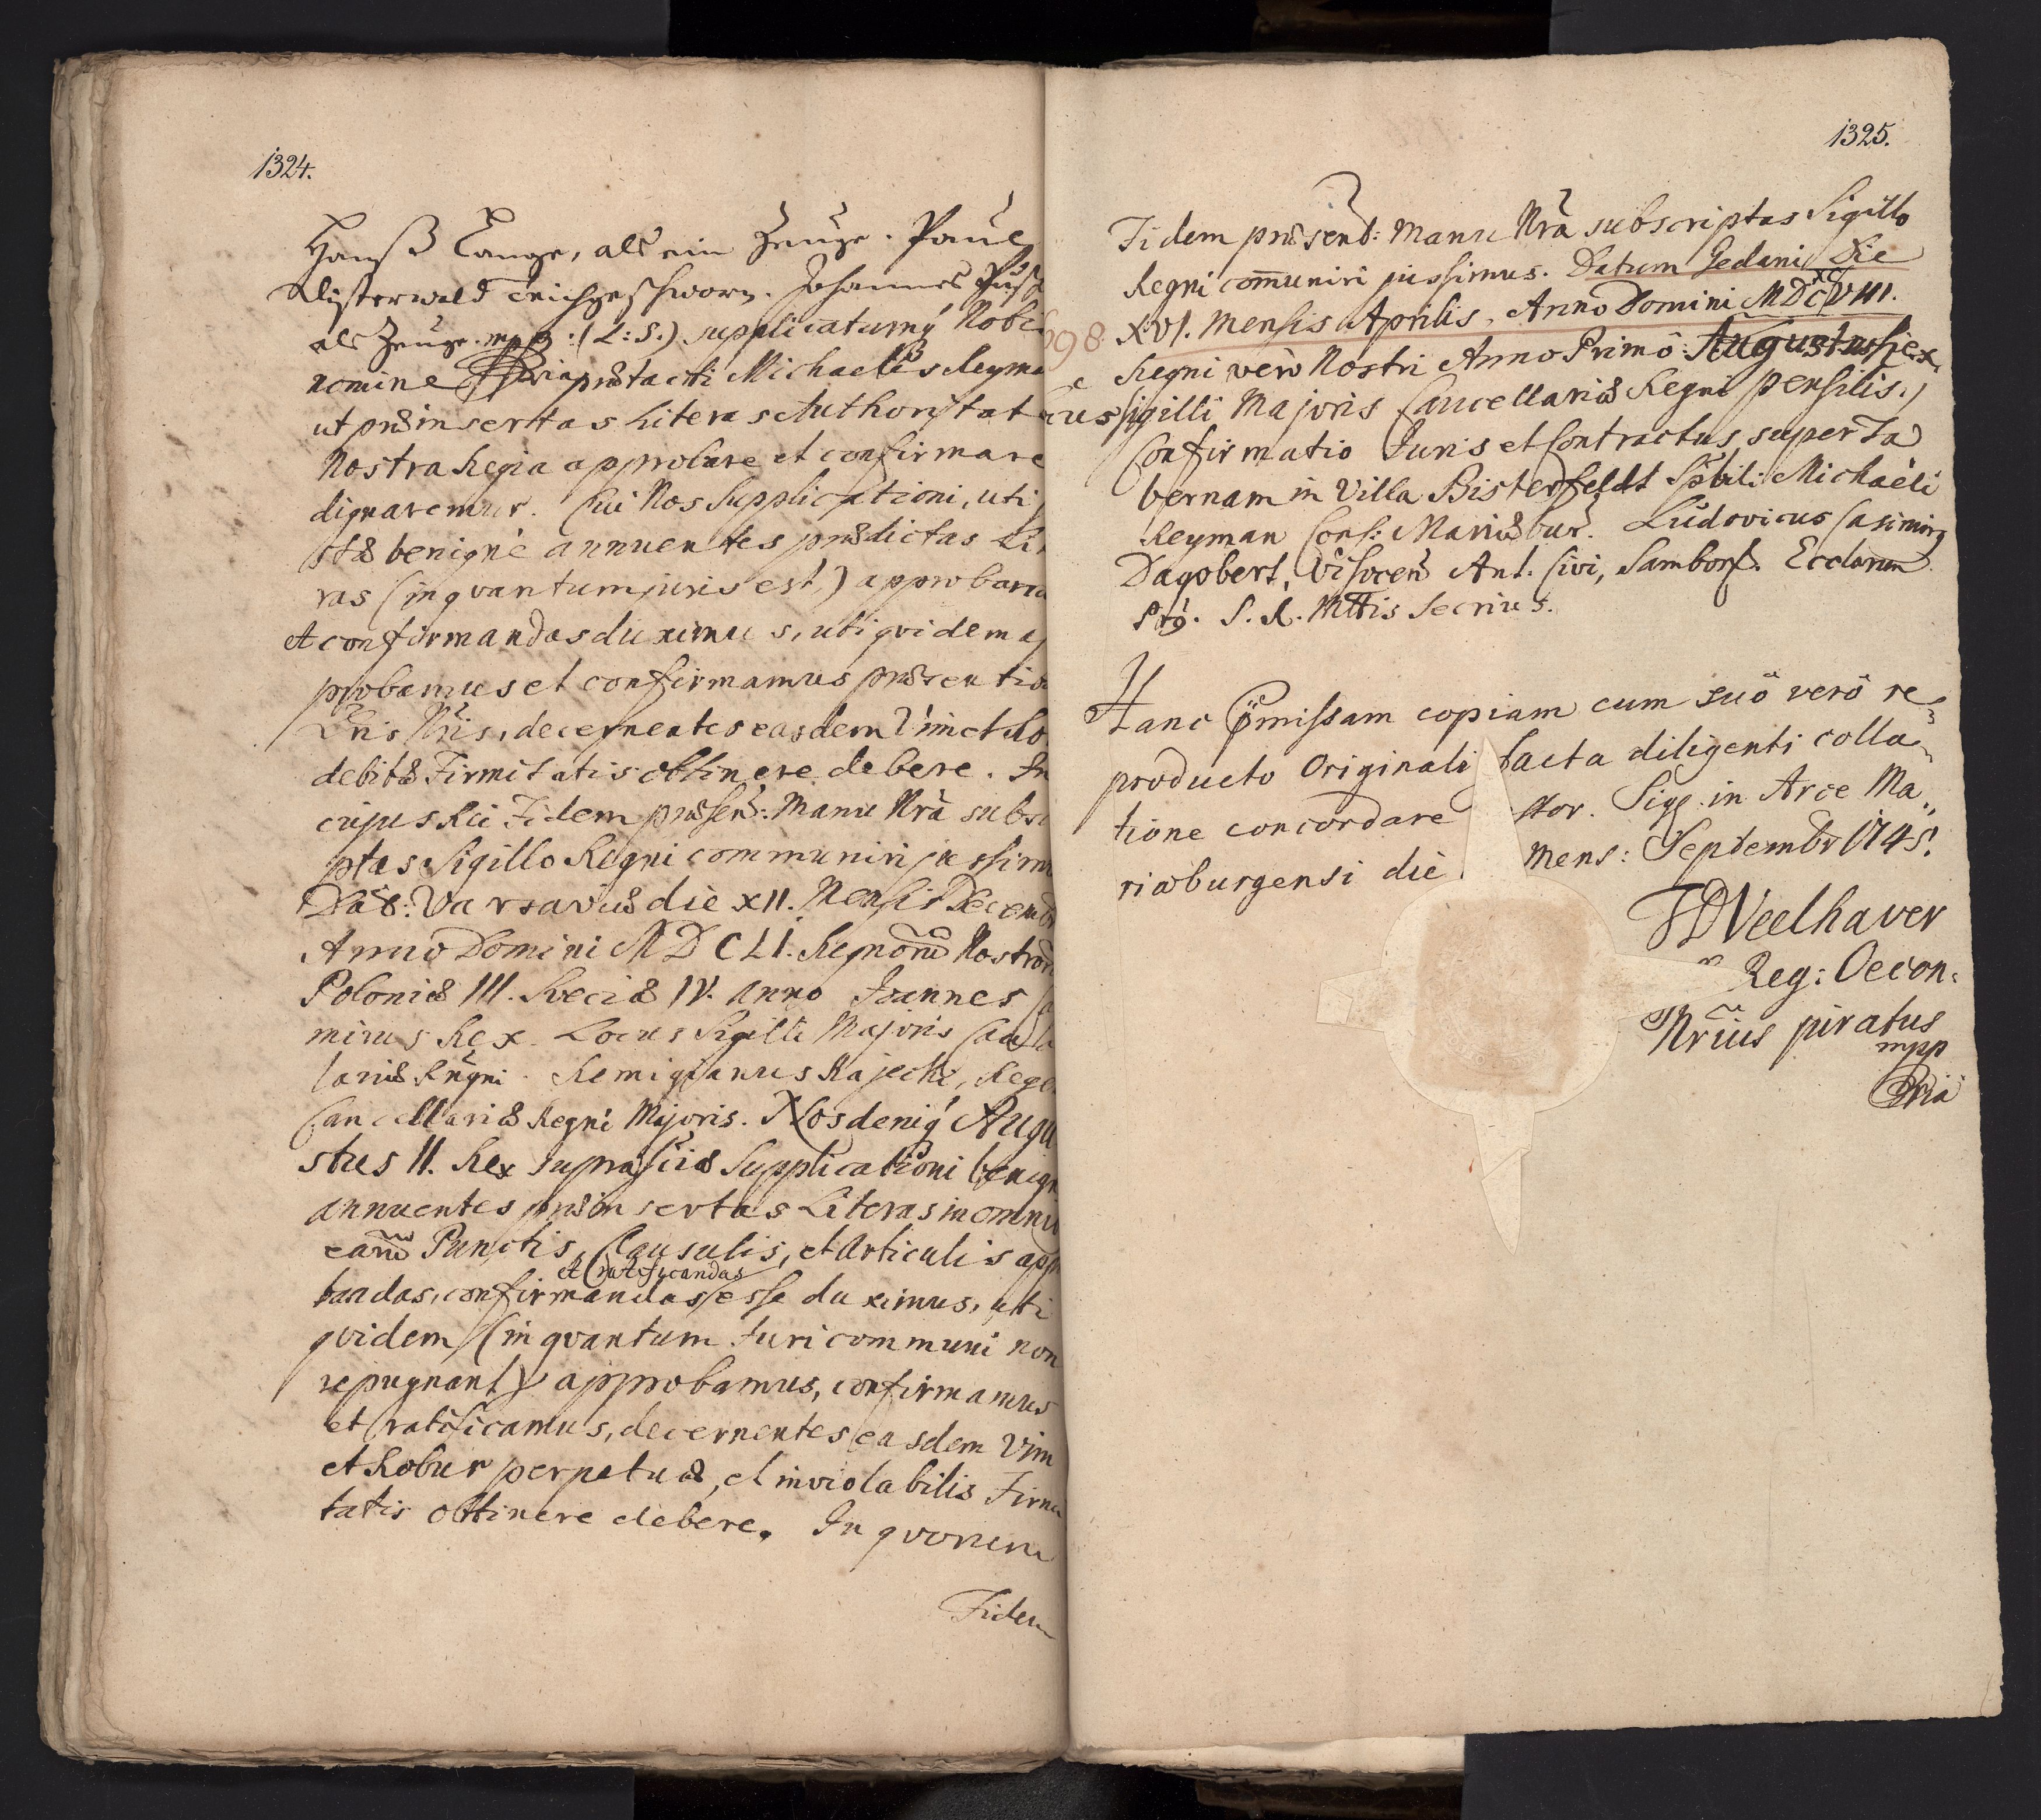 1324.
Hanß Lange, als ein Zeuge. Paul
Klisterwald Teichgeschworn. Johannes
als Zeuge. mpp: (L: S.) supplicatumq́ Nobis
nomine prætacti Michaelis Reyma
ut præinsertas Literas Authoritat
Nostra Regia approbare et confirmare
dignaremur. Cui Nos Supplicationi, uti
benignè annuentes prædictas Li
ras (in qvantum juris est,) approban
et confirmandas duximus, uti qvidem ap
probamus et confirmamus præsentib
Lris Nris, decernentes easdem Vim et Ro
debitæ Firmitatis obtinere debere. In
cujus Rei Fidem præsen: Manu Nrà subsc
ptas Sigillo Regni communiri jussim
Dat: Varsaviæ die XII. Mensis Decemb
Anno Domini MDCLI. Regnorũ Nostror
Poloniæ III. Sveciæ IV. Anno Joannes Ca
mirus Rex. Locus Sigilli Majoris Cancel
lariæ Regni. Remigianus Rajecki, Rege
Cancellariæ Regni Majoris. Nos deniq́ Augu
stus II. Rex Supplicationi benign
annuentes præinsertas Literas in omnib
earũ Punctis, Clausulis, et Articulis appr
et ratificandas
bandas, confirmandas esse duximus, uti
qvidem (in qvantum Juri communi non
repugnant) approbamus, confirmamus
et ratificamus, decernentes easdem Vim
et Robur perpetuæ, et inviolabilis Firmi
tatis obtinere debere. In qvorum
Fidem
1325.
Fidem præsent: Manu Nrà subscriptas Sigillo
Regni com̃uniri jussimus. Datum Gedani Die
698. XVI. Mensis Aprilis, Anno Domini MDCXCVIII.
Regni verò Nostri Anno Primô. Augustus Rex
cus Sigilli Majoris Cancellariæ Regni pensilis.)
Confirmatio Juris et Contractus super Ta
bernam in Villa Bisterfeldt Michaëli
Reyman Cons: Mariæbur. Ludovicus Casimirg
Dagobert, Ant. Civi, Sambors. Ecclarum
S. R. Mttis Secrius.
Hanc p̈missam copiam cum suô verô re
producto Originali facta diligenti colla
tione concordare ttor. Sigg. in Arce Ma
riæburgensi die mens: Septembr 1745.
Veelhaver
Reg: Oecon:
Nrius juratus
mpp